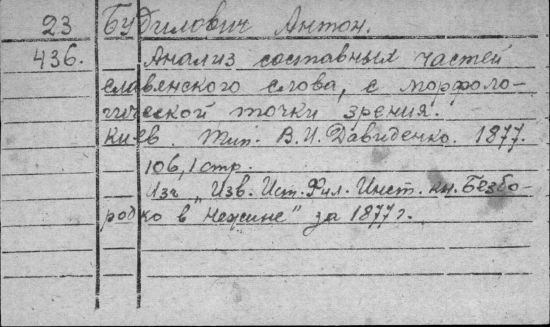 23 Будилович Антон.
436. Анализ составных частей
славянского слова, с морфоло-
гической точки зрения.
Киев. Тип. В.И. Давиденко. 1877.
106,1 стр.
Из „Изв. Ист. Фил. Инст. кн. Безбо-
родко в Нежине" за 1877 г.